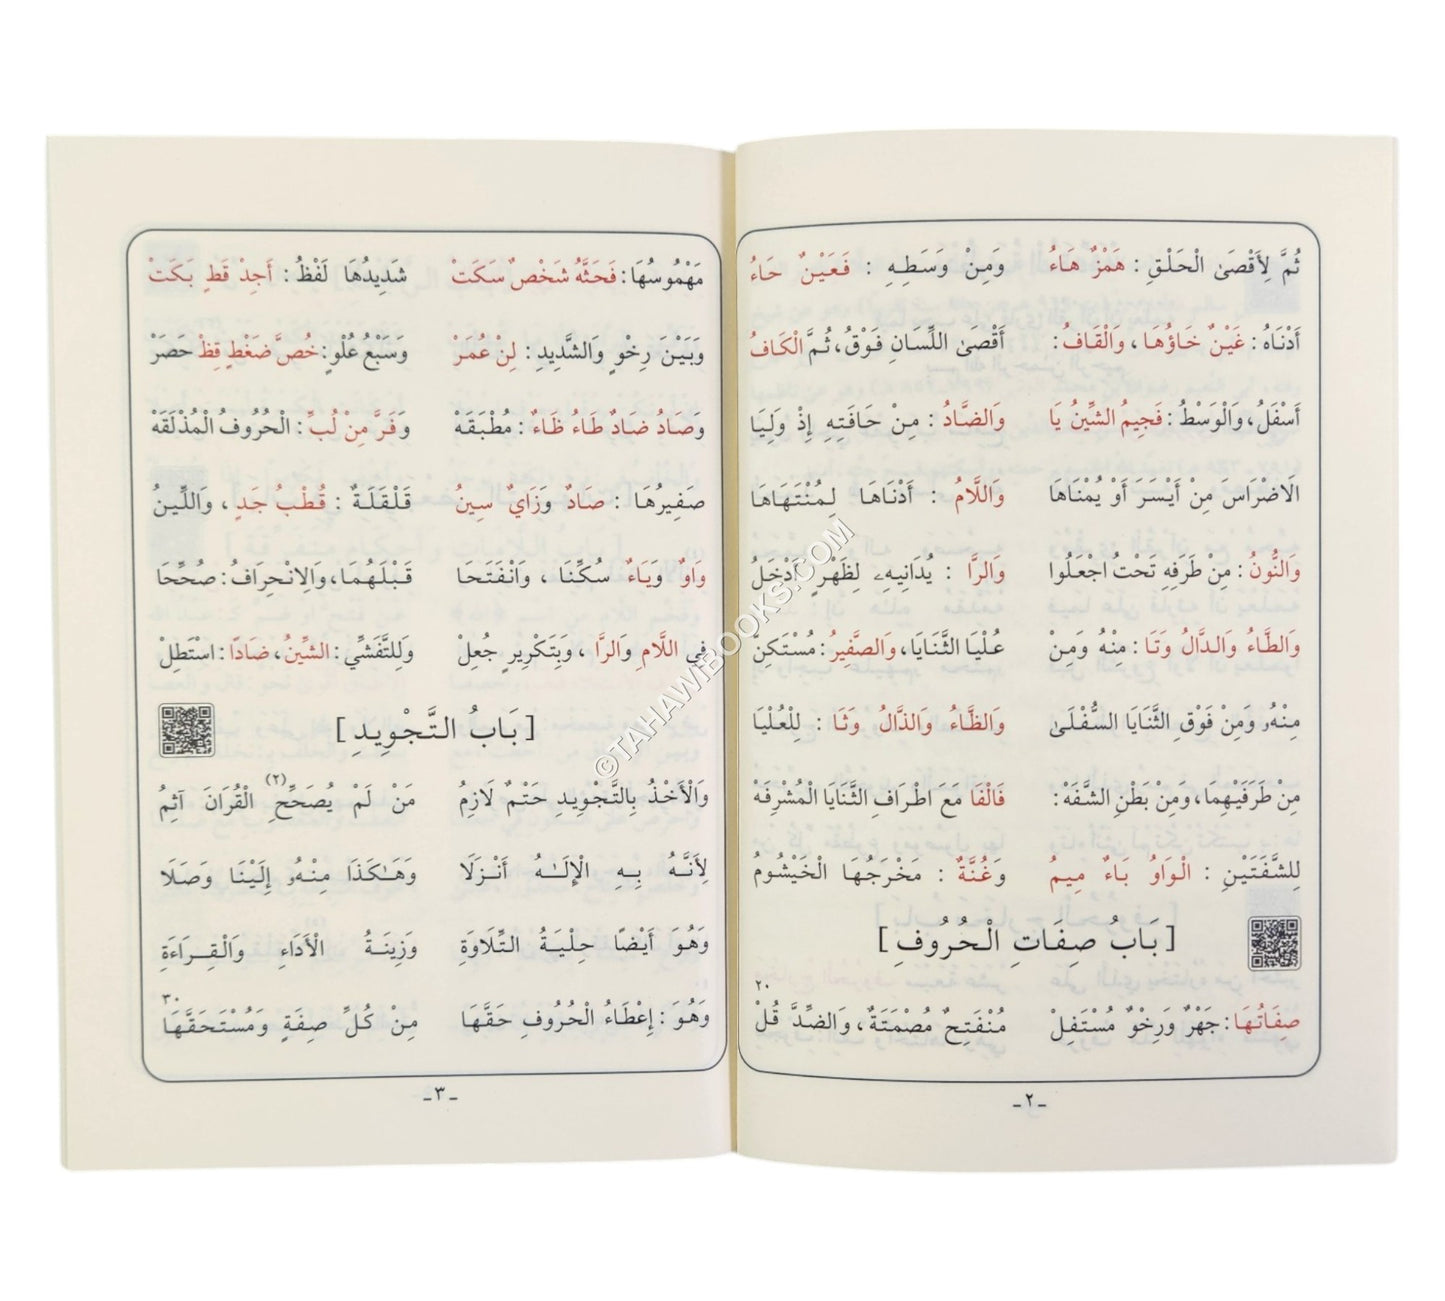 ثُمَّ لِأَقْصَى الْحَلْقِ : هَمْزٌ هَاءُ وَمِنْ وَسَطِهِ : فَعَيْنٌ حَاءُ
أَدْنَاهُ : غَيْنٌ خَاؤُهَا ، وَالْقَافُ : أَقْصَى اللِّسَانِ فَوْقُ ، ثُمَّ الْكَافُ
أَسْفَلُ ، وَالْوَسْطُ : فَجِيمُ الشِّينُ يَا وَالضَّادُ : مِنْ حَافَتِهِ إِذْ وَلِيَا
الَاضْرَاسَ مِنْ أَيْسَرَ أَوْ يُمْنَاهَا وَاللَّامُ : أَدْنَاهَا لِمُنْتَهَاهَا
وَالنُّونُ : مِنْ طَرَفِهِ تَحْتُ اجْعَلُوا وَالرَّا : يُدَانِيهِ لِظَهْرٍ أَدْخَلُ
وَالطَّاءُ وَالدَّالُ وَتَا : مِنْهُ وَمِنْ عُلْيَا الثَّنَايَا ، وَالصَّفِيرُ : مُسْتَكِنّْ
مِنْهُ وَمِنْ فَوْقِ الثَّنَايَا السُّفْلَى وَالظَّاءُ وَالذَّالُ وَثَا : لِلْعُلْيَا
مِنْ طَرَفَيْهِمَا ، وَمِنْ بَطْنِ الشَّفَهْ : فَالْفَا مَعَ اطْرَافِ الثَّنَايَا الْمُشْرِفَهْ
لِلشَّفَتَيْنِ : الْوَاوُ بَاءٌ مِيمُ وَغُنَّةٌ : مَخْرَجُهَا الْخَيْشُومُ
[ بَابُ صِفَاتِ الْحُرُوفِ ]
صِفَاتُهَا : جَهْرٌ وَرِخْوٌ مُسْتَفِلْ مُنْفَتِحٌ مُصْمَتَةٌ ، وَالضِّدَّ قُلْ ٢٠
-٢-
مَهْمُوسُهَا : فَحَثَّهُ شَخْصٌ سَكَتْ شَدِيدُهَا لَفْظُ : أَجِدْ قَطٍ بَكَتْ
وَبَيْنَ رِخْوٍ وَالشَّدِيدِ : لِنْ عُمَرْ وَسَبْعُ عُلْوٍ : خُصَّ ضَغْطٍ قِظْ حَصَرْ
وَصَادُ ضَادٌ طَاءُ ظَاءٌ : مُطْبَقَهْ وَفَرَّ مِنْ لُبِّ : الْحُرُوفُ الْمُذْلَقَهْ
صَفِيرُهَا : صَادٌ وَزَايٌ سِينُ قَلْقَلَةٌ : قُطْبُ جَدٍ ، وَاللِّينُ
وَاوٌ وَيَاءٌ سُكِّنَا ، وَانْفَتَحَا قَبْلَهُمَا ، وَالِانْحِرَافُ : صُحِّحَا
فِي اللَّامِ وَالرَّا ، وَبِتَكْرِيرٍ جُعِلْ وَلِلتَّفَشِّي : الشِّينُ ، ضَادًا : اسْتَطِلْ
[ بَابُ التَّجْوِيدِ ]
وَالْأَخْذُ بِالتَّجْوِيدِ حَتْمٌ لَازِمُ مَنْ لَمْ يُصَحِّحِ (٢) الْقُرَانَ آثِمُ
لِأَنَّهُ بِهِ الْإِلَـٰهُ أَنْزَلَا وَهَـٰكَذَا مِنْهُ إِلَيْنَا وَصَلَا
وَهُوَ أَيْضًا حِلْيَةُ التِّلَاوَةِ وَزِينَةُ الْأَدَاءِ وَالْقِرَاءَةِ
وَهُوَ : إِعْطَاءُ الْحُرُوفِ حَقَّهَا مِنْ كُلِّ صِفَةٍ وَمُسْتَحَقَّهَا ٣٠
-٣-
©TAHAWIBOOKS.COM